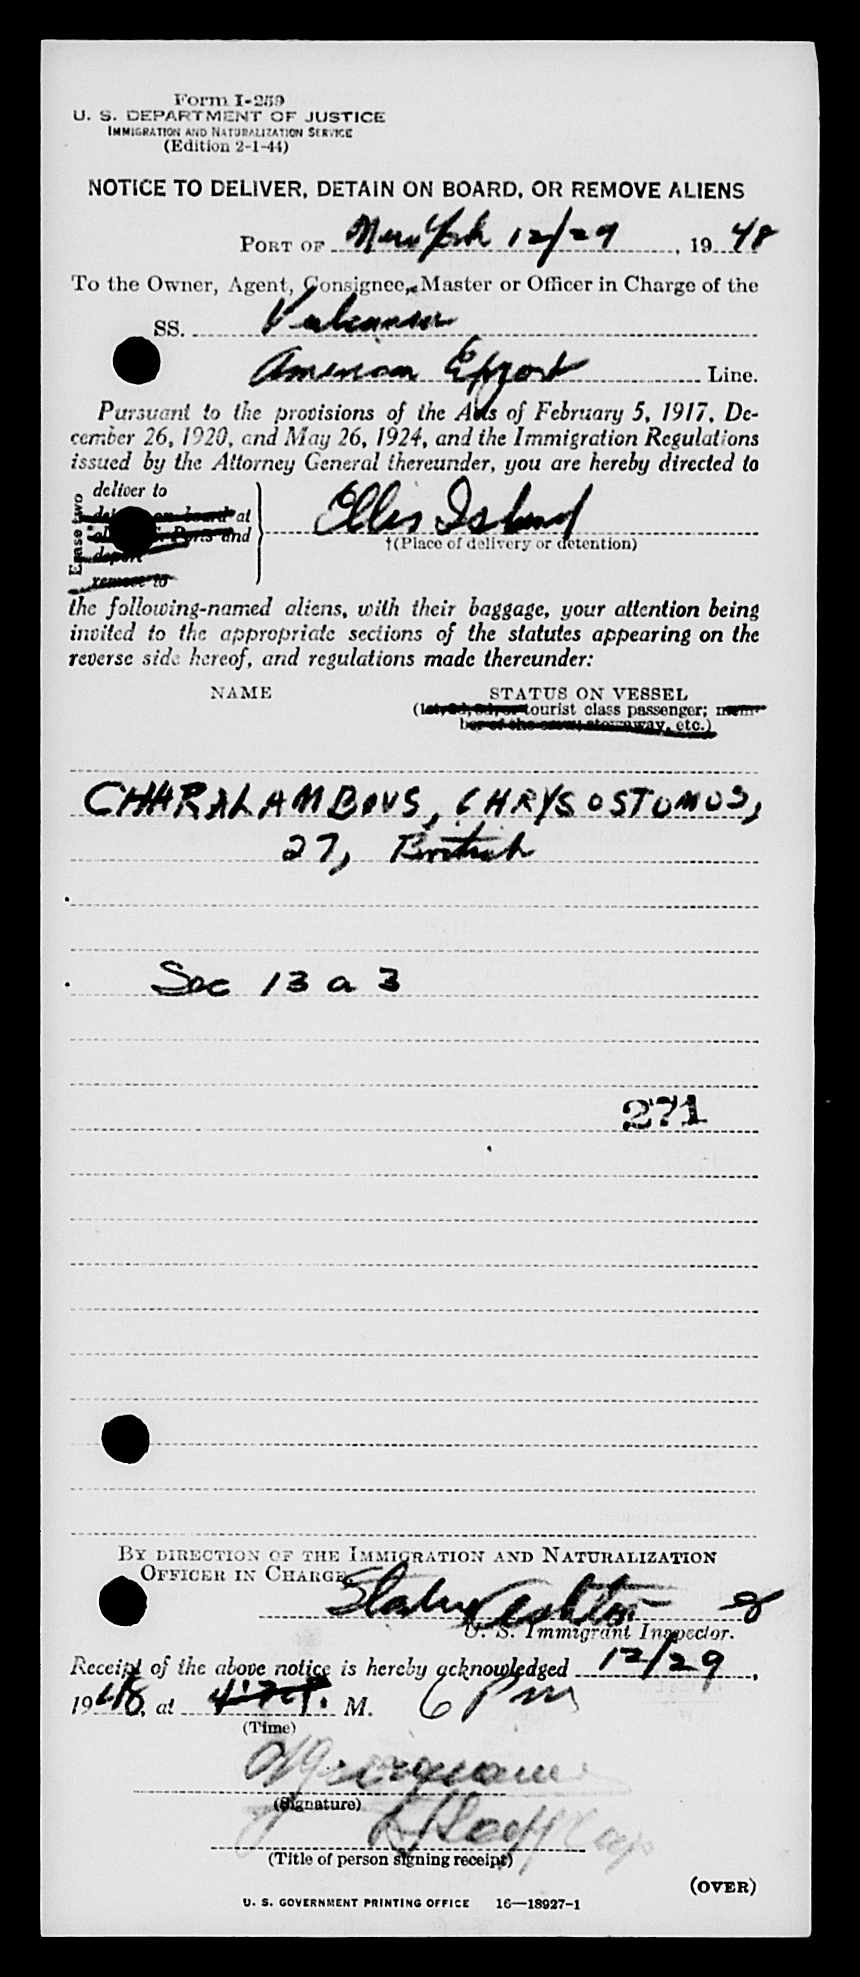 Form I-259
U. S. DEPARTMENT OF JUSTICE
IMMIGRATION AND NATURALIZATION SERVICE
(Edition 2-1-44)
NOTICE TO DELIVER, DETAIN ON BOARD, OR REMOVE ALIENS
PORT OF New York 12/29, 1948
To the Owner, Agent, Consignee, Master or Officer in Charge of the
SS. Vulcania
American Export Line.
Pursuant to the provisions of the Acts of February 5, 1917, De-
cember 26, 1920, and May 26, 1924, and the Immigration Regulations
issued by the Attorney General thereunder, you are hereby directed to
Erase two
deliver to
on board at
Ports and
deport
remove to
Ellis Island
†(Place of delivery or detention)
the following-named aliens, with their baggage, your attention being
invited to the appropriate sections of the statutes appearing on the
reverse side hereof, and regulations made thereunder:
NAME STATUS ON VESSEL
(1st, 2d, 3d, or tourist class passenger; mem-
ber of the crew, stowaway, etc.)
CHARALAMBOUS, CHRYSOSTOMOS,
27, British
Sec 13 a 3
271
BY DIRECTION OF THE IMMIGRATION AND NATURALIZATION
OFFICER IN CHARGE.
U. S. Immigrant Inspector.
Receipt of the above notice is hereby acknowledged 12/29,
1948, at M. 6 Pm
(Time)
(Signature)
(Title of person signing receipt)
(OVER)
U. S. GOVERNMENT PRINTING OFFICE 16—18927-1